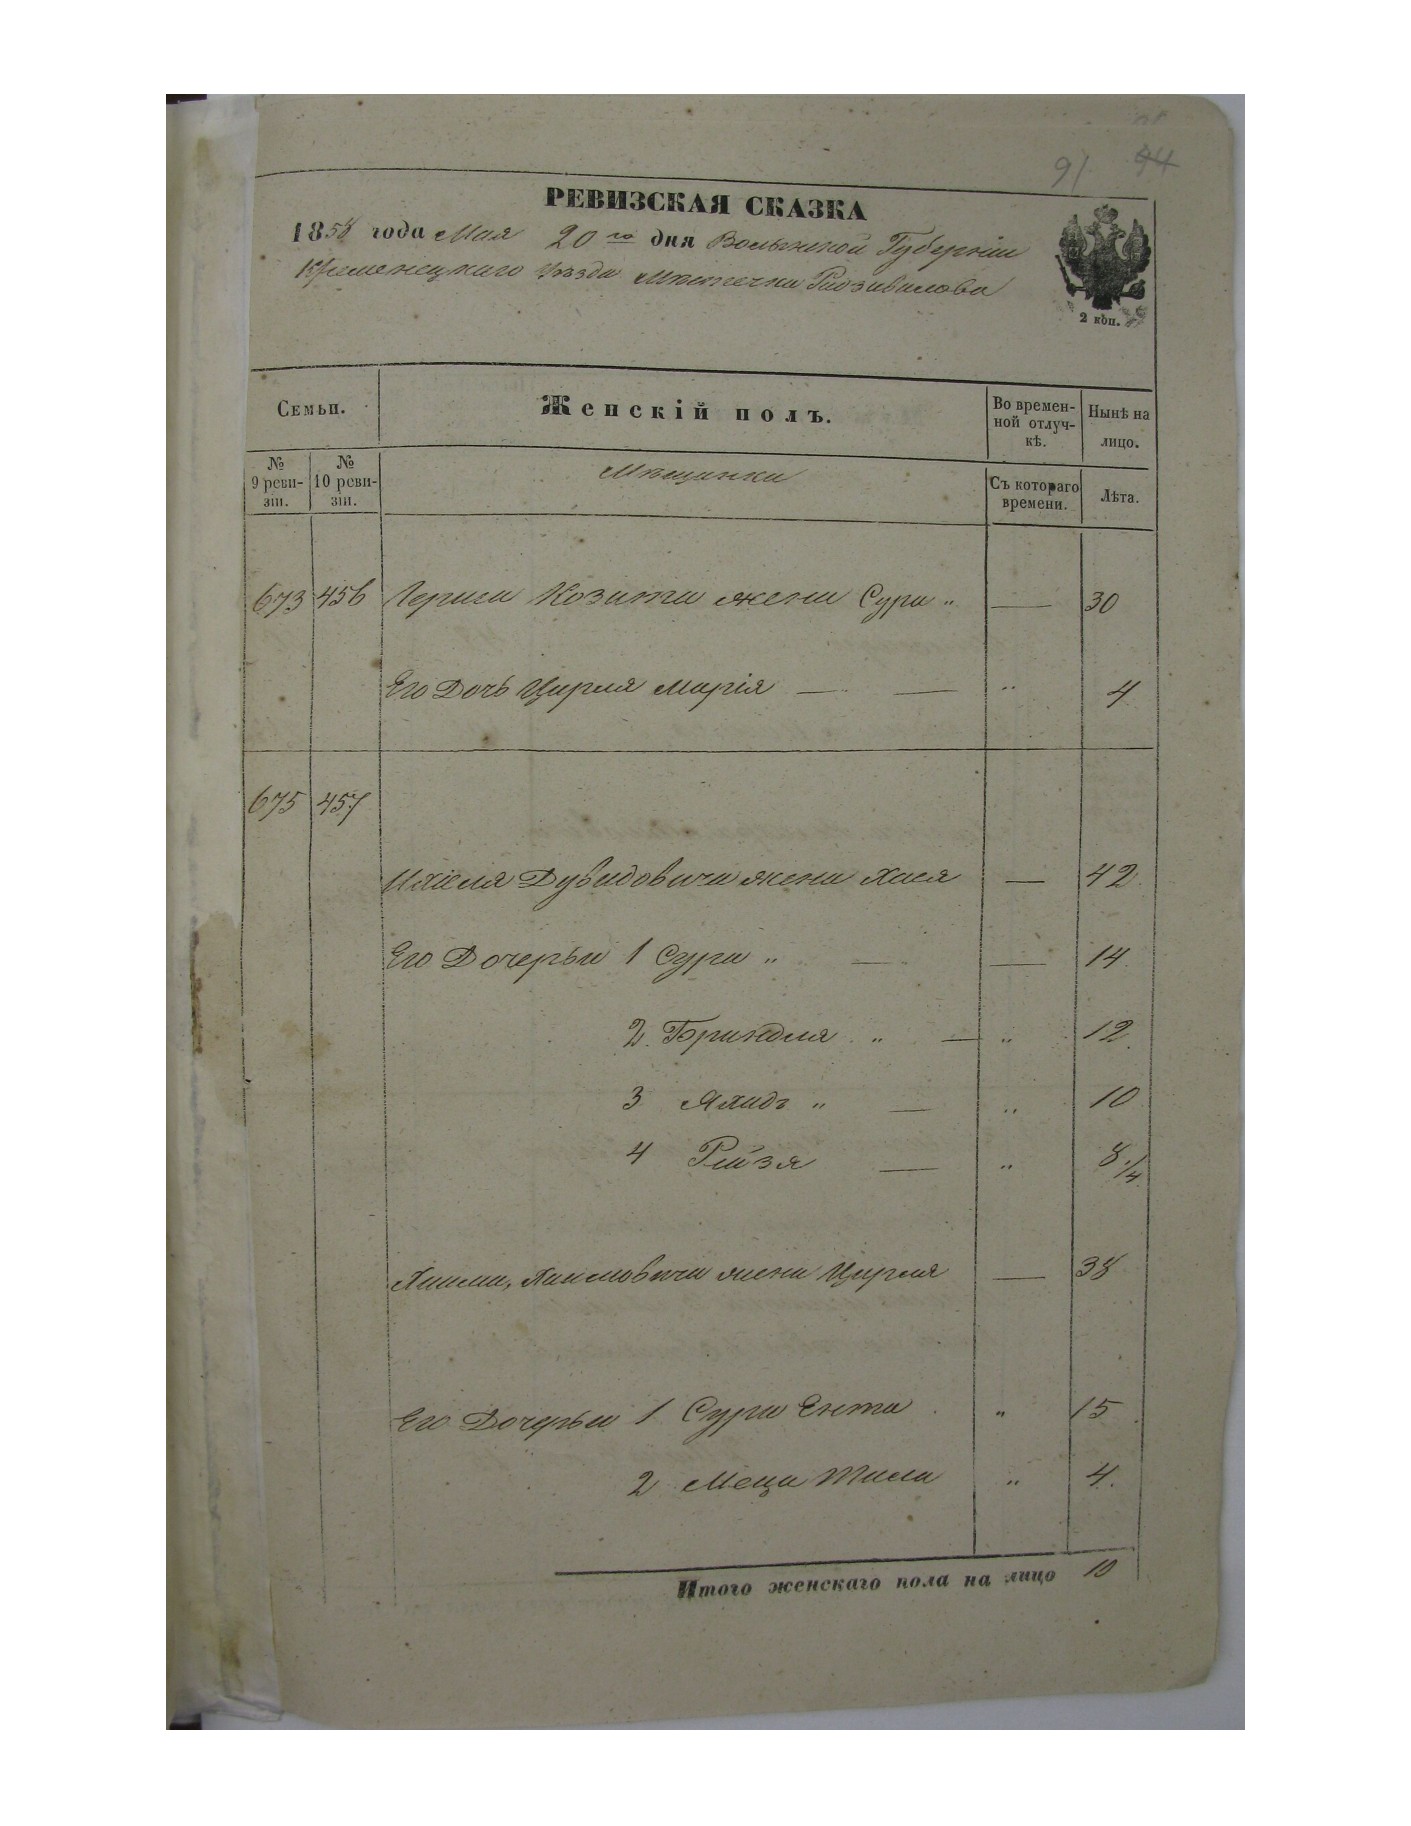 91 44
РЕВИЗСКАЯ СКАЗКА
1858 года Мая 20го дня Волынской Губернiи
Кременецкаго уѣзда Мѣстечка Радзивилова
2 коп.
Семьи.
Женскiй полъ.
Во времен-
ной отлуч-
кѣ.
Нынѣ на
лицо.
№
9 реви-
зiи.
№
10 реви-
зiи.
Мѣщанки
Съ котораго
времени.
Лѣта.
673 456 жена Сура „ — 30
Его Дочь Цирля Марiя — — „ 4
675 457
Дувидовича жена Хася — 42
Его Дочерьи 1 Сура „ — — 14
2. Бриндля „ — „ 12
3 Яхидъ „ — „ 10
4 Рейзя — „ 8 1/4
Хаима, Хаимовича жена Цирля — 38
Его Дочерьи 1 Сура Ента „ 15
2 „ 4.
Итого женскаго пола на лицо 10